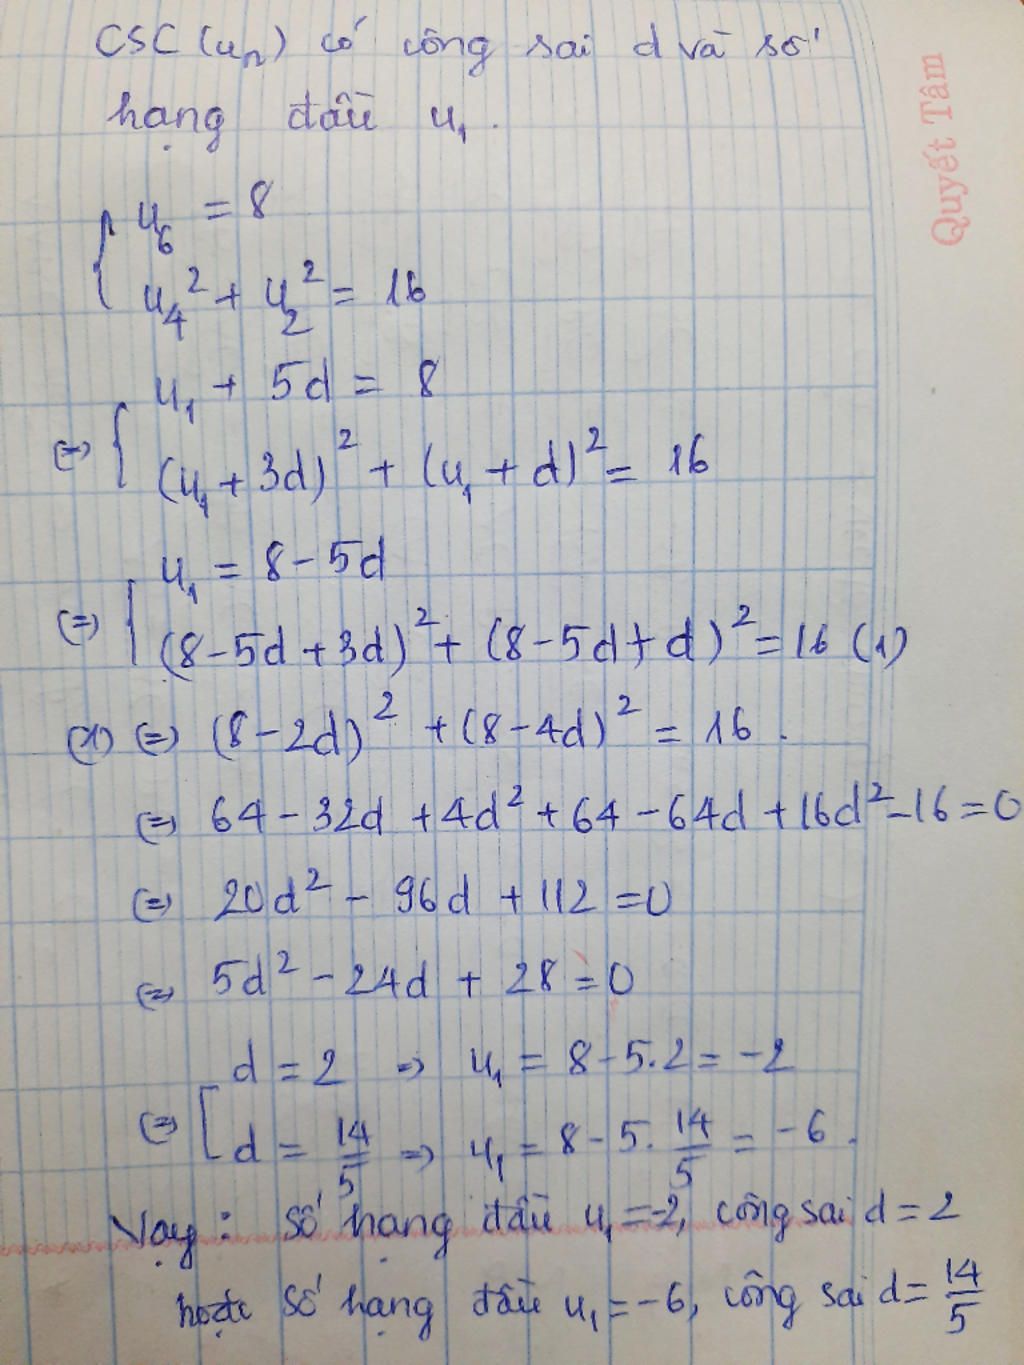 CSC (uₙ) có công sai d và số
hạng đầu u₁.
Quyết Tâm
{ u₆ = 8
u₄² + u₂² = 16
(=) { u₁ + 5d = 8
(u₁ + 3d)² + (u₁ + d)² = 16
(=) { u₁ = 8 - 5d
(8 - 5d + 3d)² + (8 - 5d + d)² = 16 (1)
(1) (=) (8 - 2d)² + (8 - 4d)² = 16.
(=) 64 - 32d + 4d² + 64 - 64d + 16d² - 16 = 0
(=) 20d² - 96d + 112 = 0
(=) 5d² - 24d + 28 = 0
(=) [ d = 2 => u₁ = 8 - 5.2 = -2
d = 14/5 => u₁ = 8 - 5. 14/5 = -6.
Vậy: số hạng đầu u₁ = -2, công sai d = 2
hoặc số hạng đầu u₁ = -6, công sai d = 14/5